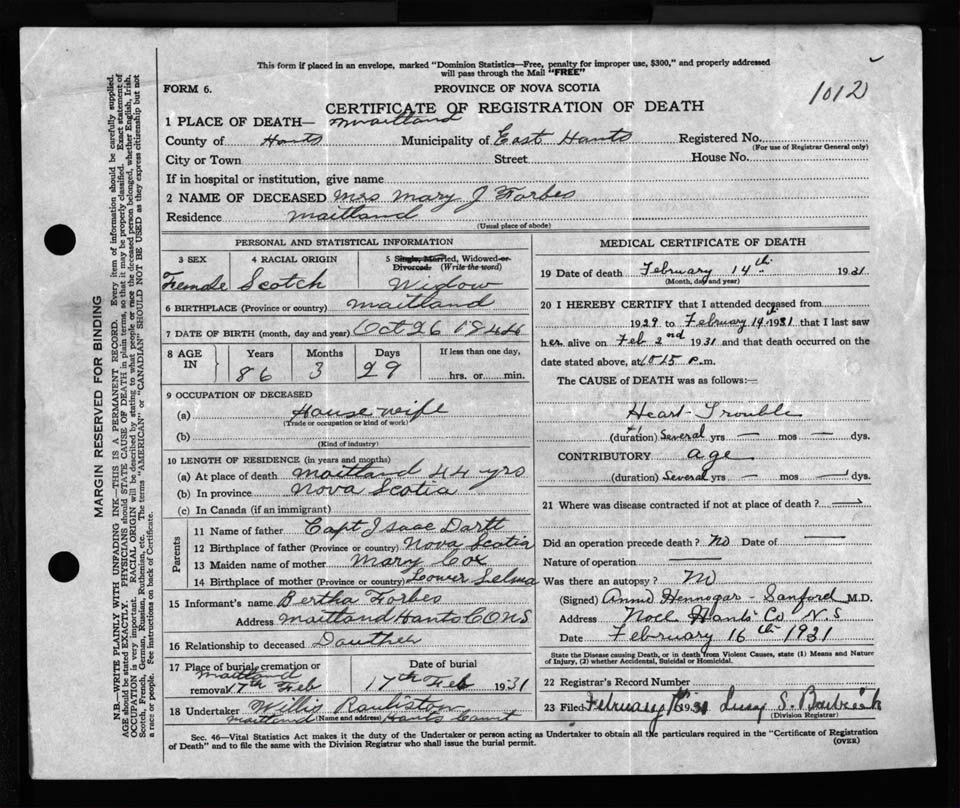 This form if placed in an envelope, marked "Dominion Statistics—Free, penalty for improper use, $300," and properly addressed
will pass through the Mail "FREE"
FORM 6.
PROVINCE OF NOVA SCOTIA
1012
CERTIFICATE OF REGISTRATION OF DEATH
1 PLACE OF DEATH— Maitland
County of Hants Municipality of East Hants Registered No.
(For use of Registrar General only)
City or Town Street House No.
If in hospital or institution, give name
2 NAME OF DECEASED Mrs Mary J Forbes
Residence Maitland
(Usual place of abode)
PERSONAL AND STATISTICAL INFORMATION
3 SEX 4 RACIAL ORIGIN 5 Single, Married, Widowed or
Divorced. (Write the word)
Female Scotch Widow
6 BIRTHPLACE (Province or country) Maitland
7 DATE OF BIRTH (month, day and year) Oct 26 1844
8 AGE IN Years Months Days If less than one day,
86 3 29 hrs. or min.
9 OCCUPATION OF DECEASED
(a) House wife
(Trade or occupation or kind of work)
(b)
(Kind of industry)
10 LENGTH OF RESIDENCE (in years and months)
(a) At place of death Maitland 44 yrs
(b) In province Nova Scotia
(c) In Canada (if an immigrant)
Parents
11 Name of father Capt Isaac Dartt
12 Birthplace of father (Province or country) Nova Scotia
13 Maiden name of mother Mary Cox
14 Birthplace of mother (Province or country) Lower Selma
15 Informant's name Bertha Forbes
Address Maitland Hants CO NS
16 Relationship to deceased Douther
17 Place of burial, cremation or removal Date of burial
Maitland
17th Feb 17th Feb 1931
18 Undertaker Willis
Maitland (Name and address) Hants
MEDICAL CERTIFICATE OF DEATH
19 Date of death February 14th 1931
(Month, day and year)
20 I HEREBY CERTIFY that I attended deceased from
1929 to February 14th 1931 that I last saw
her alive on Feb 2nd 1931 and that death occurred on the
date stated above, at 10.15 P.m.
The CAUSE of DEATH was as follows:—
Heart-Trouble
(duration) Several yrs — mos — dys.
CONTRIBUTORY age
(duration) Several yrs — mos — dys.
21 Where was disease contracted if not at place of death? —
Did an operation precede death? No Date of —
Nature of operation —
Was there an autopsy? No
(Signed) Annie Hennegar-Sanford M.D.
Address Noel Hants Co N.S
Date February 16th 1931
State the Disease causing Death, or in death from Violent Causes, state (1) Means and Nature
of Injury, (2) whether Accidental, Suicidal or Homicidal.
22 Registrar's Record Number
23 Filed February 1931 Lucy S.
(Division Registrar)
Sec. 46—Vital Statistics Act makes it the duty of the Undertaker or person acting as Undertaker to obtain all the particulars required in the "Certificate of Registration
of Death" and to file the same with the Division Registrar who shall issue the burial permit.
(OVER)
MARGIN RESERVED FOR BINDING
N.B.—WRITE PLAINLY WITH UNFADING INK—THIS IS A PERMANENT RECORD. Every item of information should be carefully supplied.
AGE should be stated EXACTLY. PHYSICIANS should STATE CAUSE OF DEATH in plain terms, so that it may be properly classified. Exact statement of
OCCUPATION is very important. RACIAL ORIGIN will be described by stating to what people or race the deceased person belonged, whether English, Irish,
Scotch, French, German, Russian, Ruthenian, etc. The terms "AMERICAN" or "CANADIAN" SHOULD NOT BE USED as they express citizenship but not
a race or people. See instructions on back of Certificate.